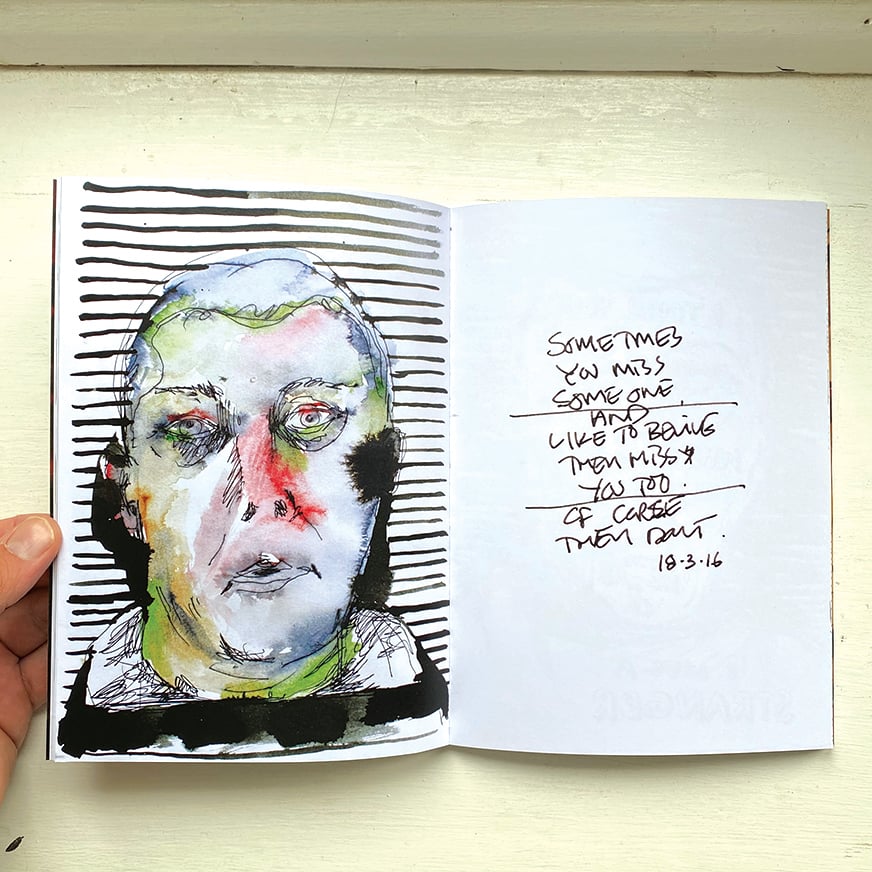 SOMETIMES
YOU MISS
SOMEONE.
AND
LIKE TO
THEY MISS
YOU TOO.
OF CORSE
THEY DON'T.
18.3.16